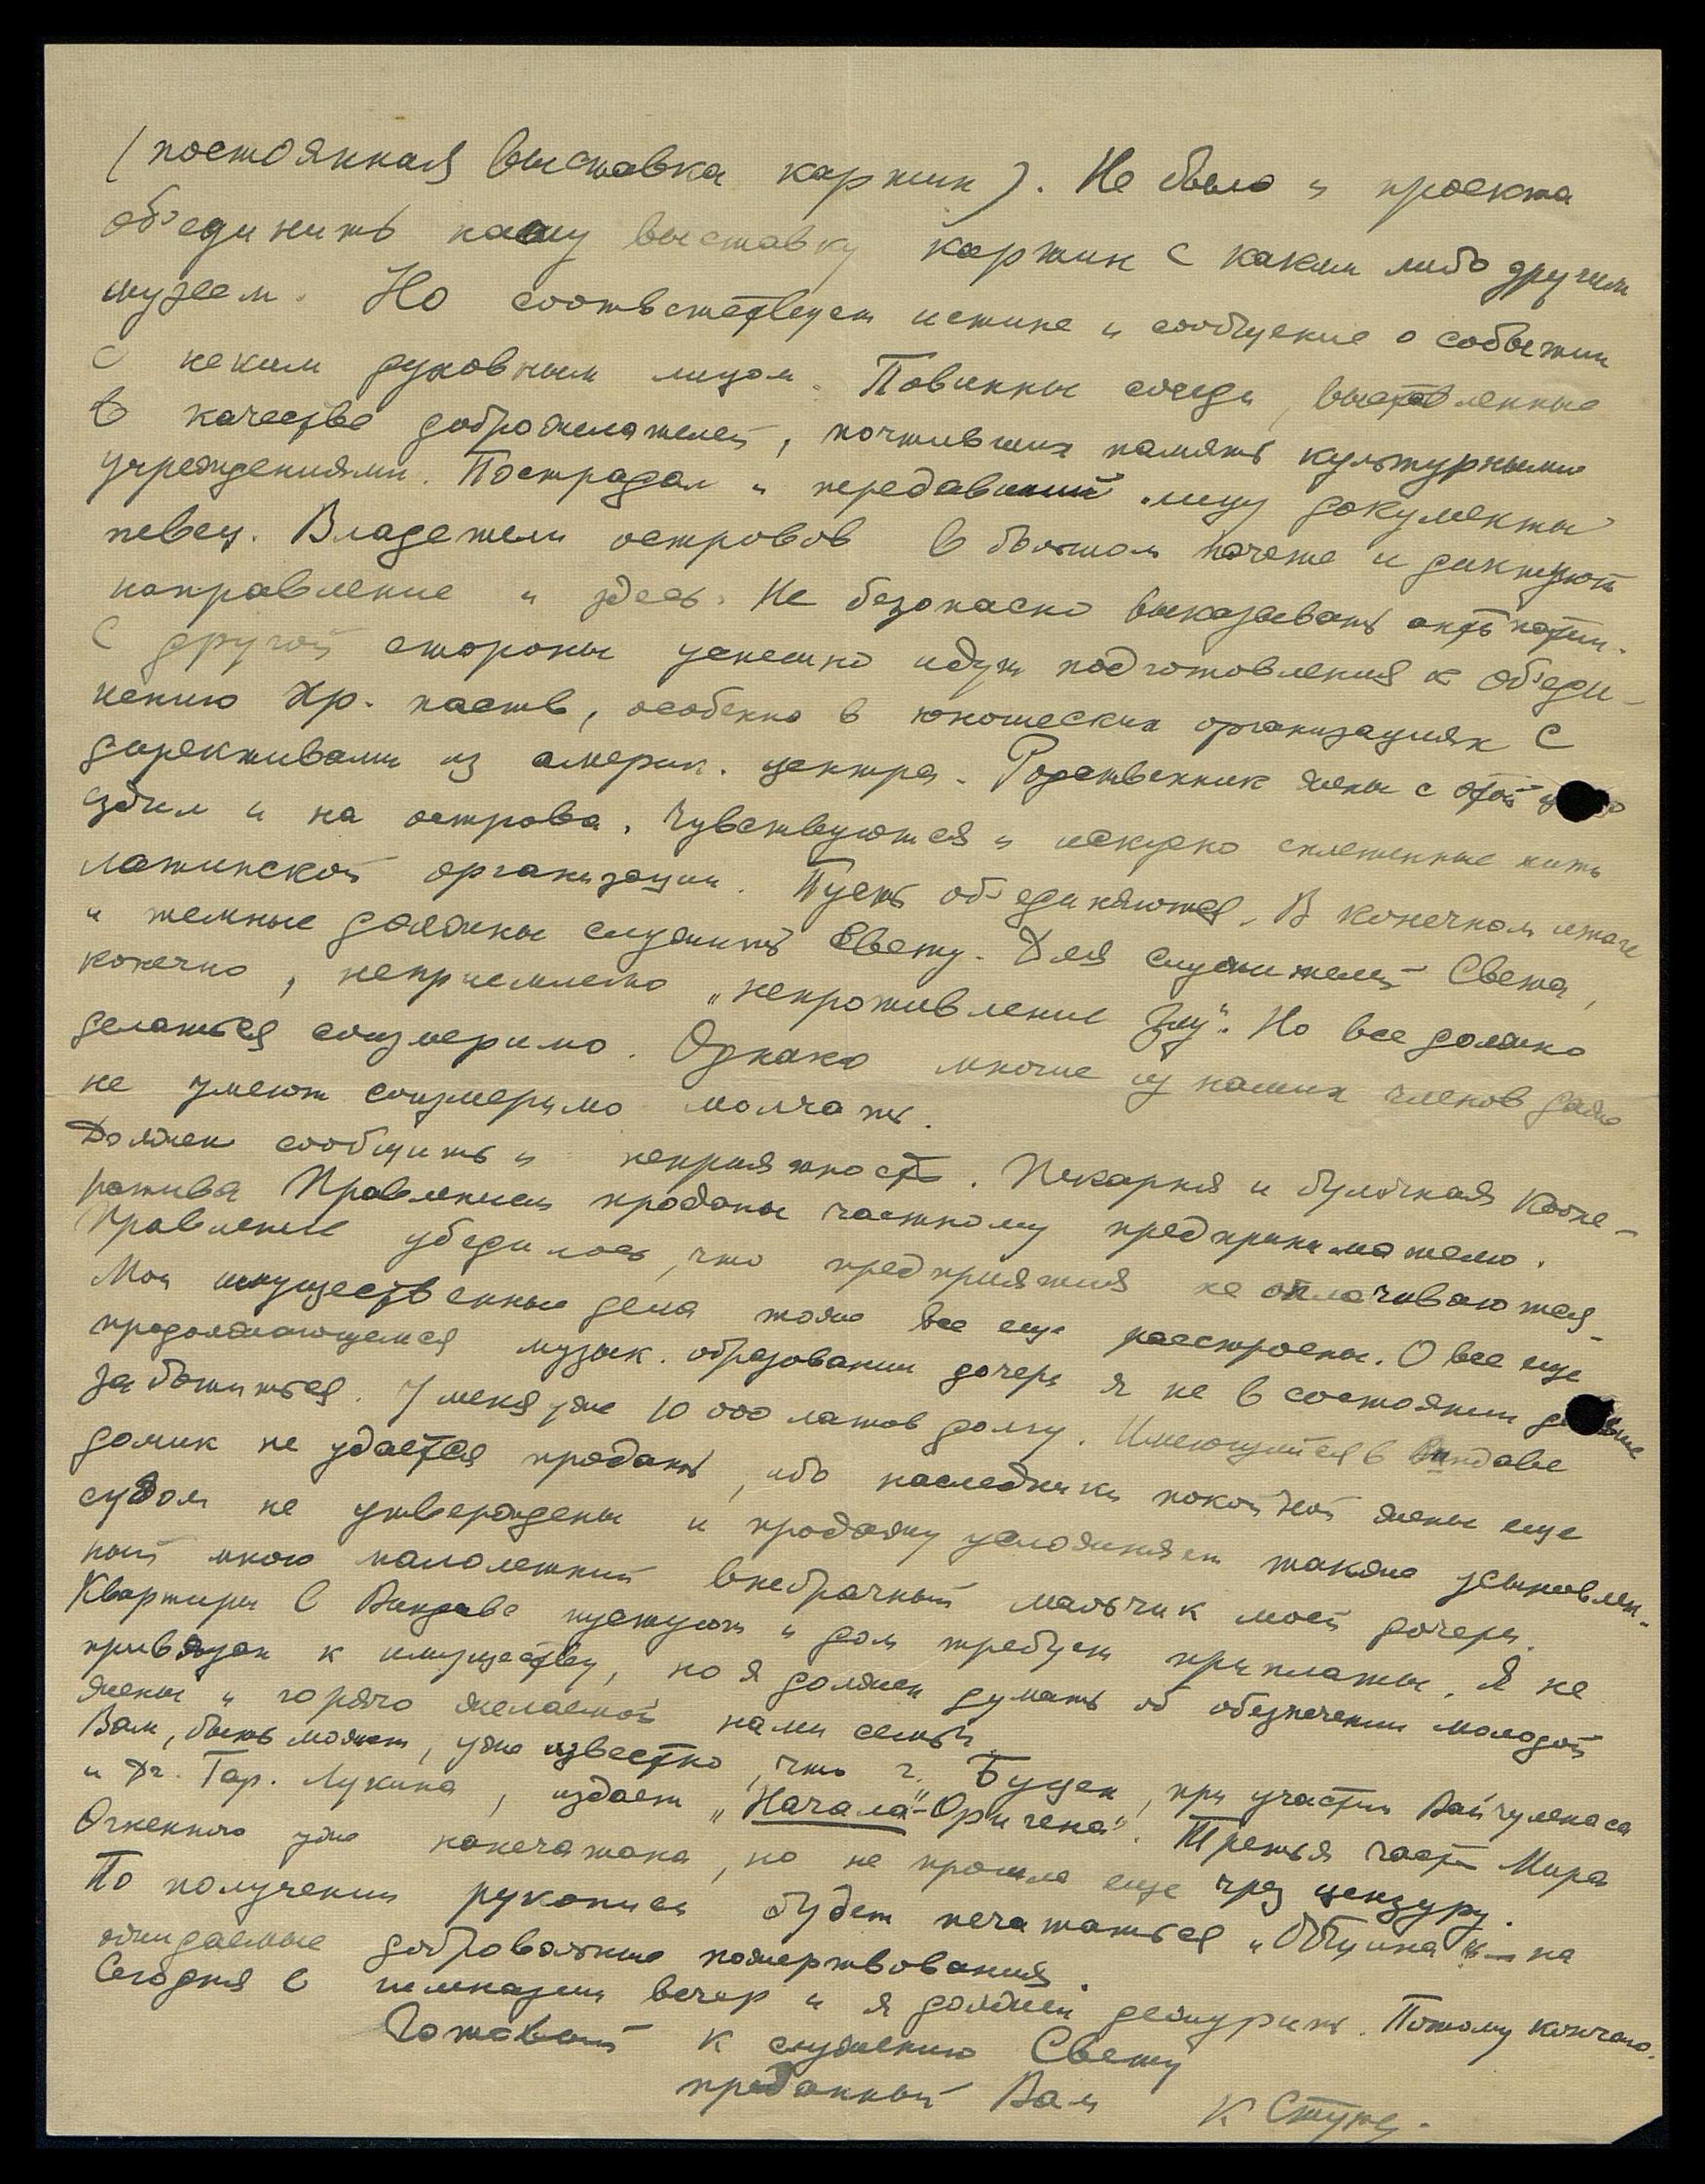 (постоянная выставка картин). Не было и проекта
об'единить нашу выставку картин с каким либо другим
музеем. Но соответствует истине и сообщение о событии
с неким духовным лицом. Повинны соседи, выставленные
в качестве доброжелателей, почтивших память культурными
учреждениями. Пострадал и передавший лицу документы
певец. Владетели островов в большом почете и диктуют
направление и здесь. Не безопасно высказывать антипатии.
С другой стороны успешно идут подготовления к об'еди-
нению Хр. паств, особенно в юношеских организациях с
директивами из америк. центра. Родственник жены с этой
ездил и на острова. Чувствуются и искусно сплетенные нити
латинской организации. Пусть об'единяются. В конечном итоге
и темные должны служить Свету. Для служителей Света,
конечно, неприемлемо „непротивление злу“. Но все должно
делаться соизмеримо. Однако многие из наших членов даже
не умеют соизмеримо молчать.
Должен сообщить и неприятность. Пекарня и булочная Коопе-
ратива Правлением проданы частному предпринимателю.
Правление убедилось, что предприятия не оплачиваются.
Мои имущественные дела тоже все еще расстроены. О все еще
продолжающемся музык. образовании дочери я не в состоянии дальше
заботиться. У меня уже 10 000 латов долгу. Имеющийся в Виндаве
домик не удается продать, ибо наследники покойной жены еще
судом не утверждены и продажу усложняет также усыновлен-
ный мною малолетний внебрачный мальчик моей дочери.
Квартиры в Виндаве пустуют и дом требует приплаты. Я не
привязан к имуществу, но я должен думать об обезпечении молодой
жены и горячо желаемой нами семьи.
Вам, быть может, уже известно, что г. Буцен, при участии Вайчуленаса
и Др. Гар. Лукина, издает „Начала“ Оригена“. Третья часть Мира
Огненного уже напечатана, но не прошла еще чрез цензуру.
По получении рукописи будет печататься „Община“ на
ожидаемые добровольные пожертвования.
Сегодня в гимназии вечер и я должен дежурить. Потому кончаю.
Готовый к служению Свету
преданный Вам К Стуре.